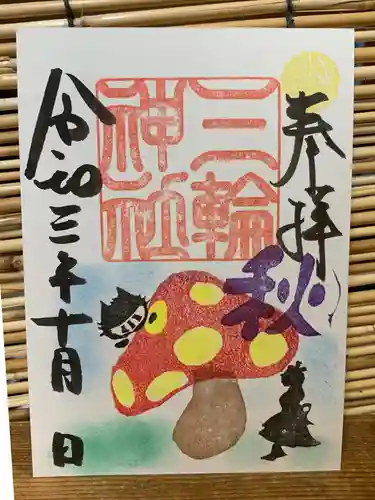 奉拝
秋
三輪
神社
令和三年十月 日